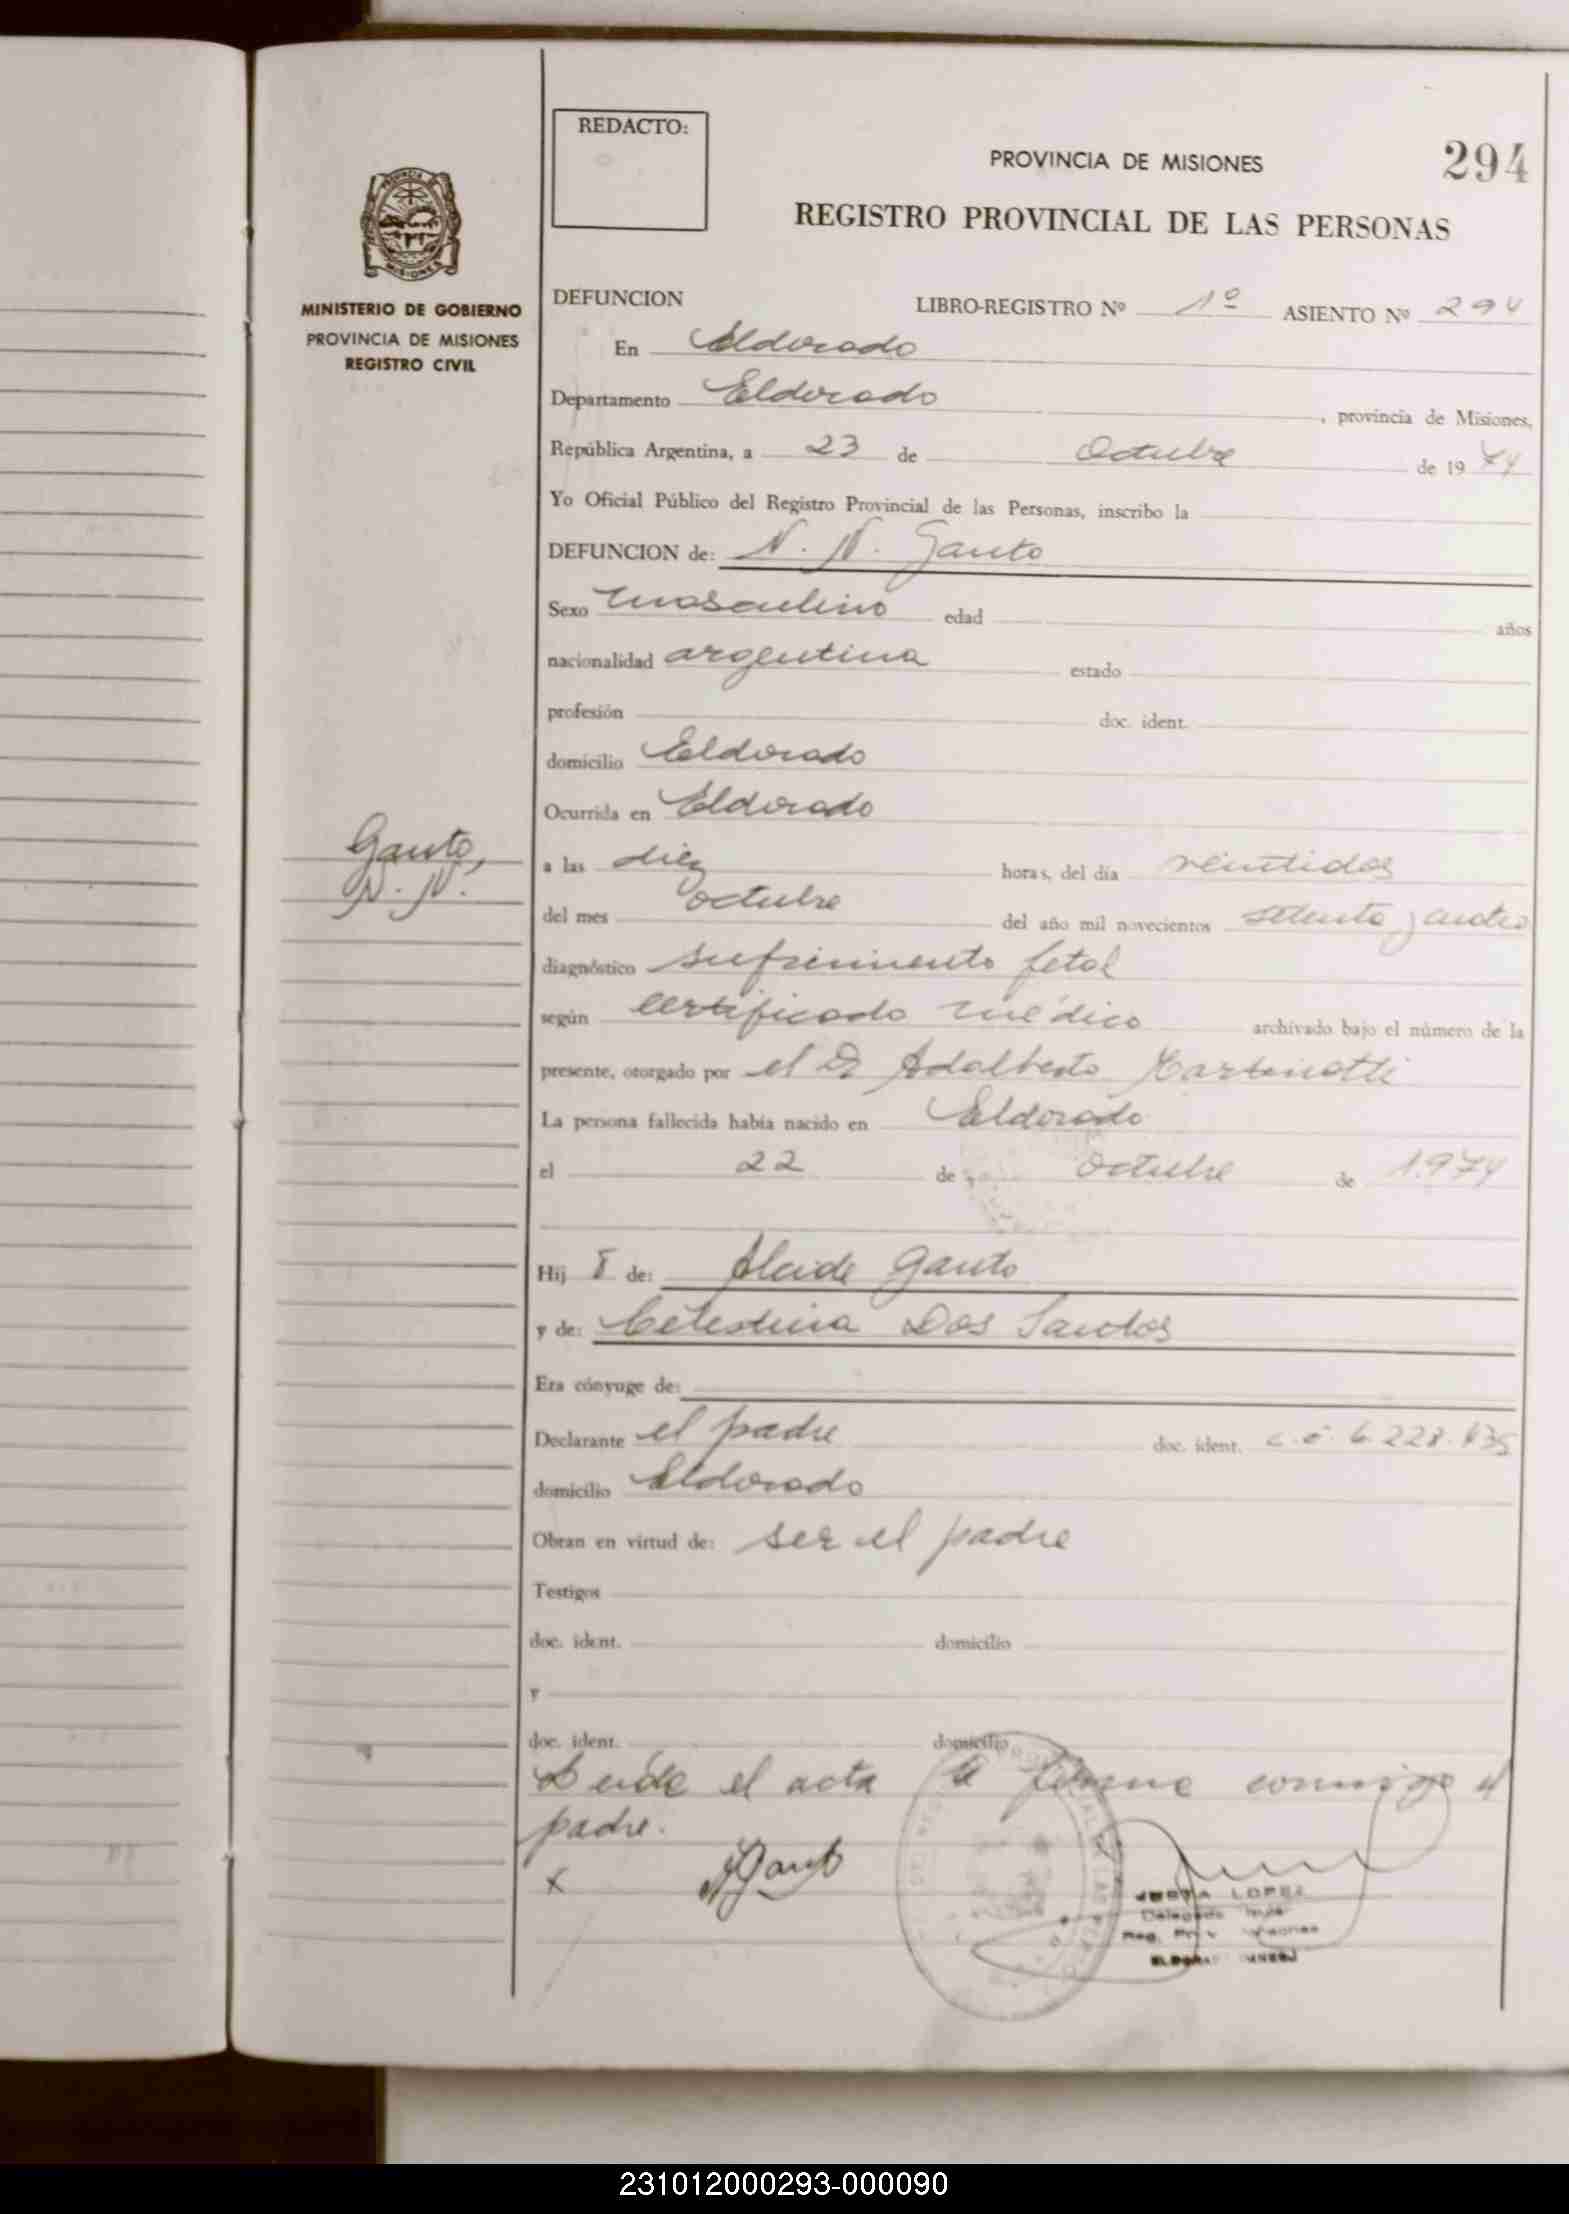 REDACTO:
PROVINCIA DE MISIONES
294
REGISTRO PROVINCIAL DE LAS PERSONAS
PROVINCIA DE
MISIONES
MINISTERIO DE GOBIERNO
PROVINCIA DE MISIONES
REGISTRO CIVIL
DEFUNCION LIBRO-REGISTRO Nº 1º ASIENTO Nº 294
En Eldorado
Departamento Eldorado, provincia de Misiones,
República Argentina, a 23 de Octubre de 1974
Yo Oficial Público del Registro Provincial de las Personas, inscribo la
DEFUNCION de: N. N. Gauto
Sexo masculino edad años
nacionalidad argentina estado
profesión doc. ident.
domicilio Eldorado
Ocurrida en Eldorado
Gauto,
N. N.
a las diez horas, del día veintidos
del mes octubre del año mil novecientos setenta y cuatro
diagnóstico sufrimiento fetal
según certificado médico archivado bajo el número de la
presente, otorgado por el Dr Adalberto
La persona fallecida había nacido en Eldorado
el 22 de octubre de 1.974
Hij de: Alcide Gauto
y de: Celestina Dos Santos
Era cónyuge de:
Declarante el padre doc. ident. 6.228.
domicilio Eldorado
Obran en virtud de: ser el padre
Testigos
doc. ident. domicilio
y
doc. ident. domicilio
el acta la conmigo el
padre.
x AGauto
LOPEZ
Delegado